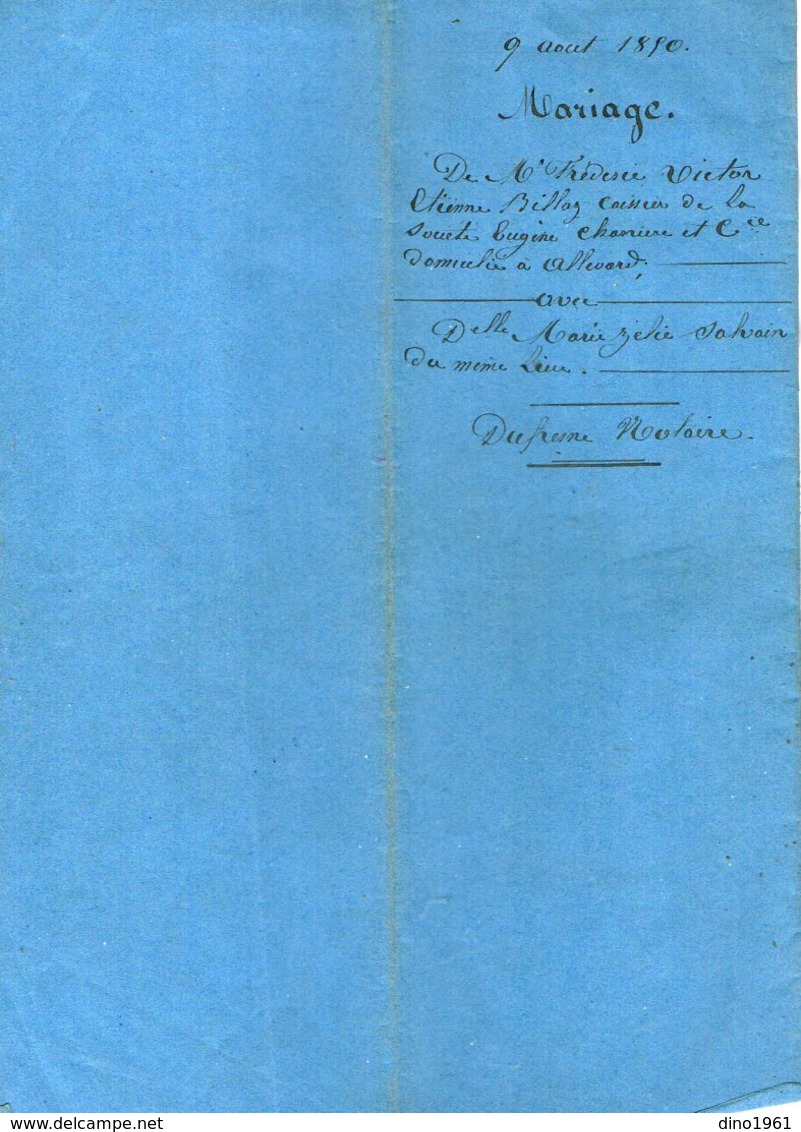 9 aout 1850.
Mariage.
De Mr Frédéric Victor
Etienne Billaz caissier de la
Société Eugène Charrière et Cie
domicilié à Allevard,
avec
Delle Marie Zélie Salvain
du même lieu.
Dufresne Notaire.
delcampe.net
dino1961